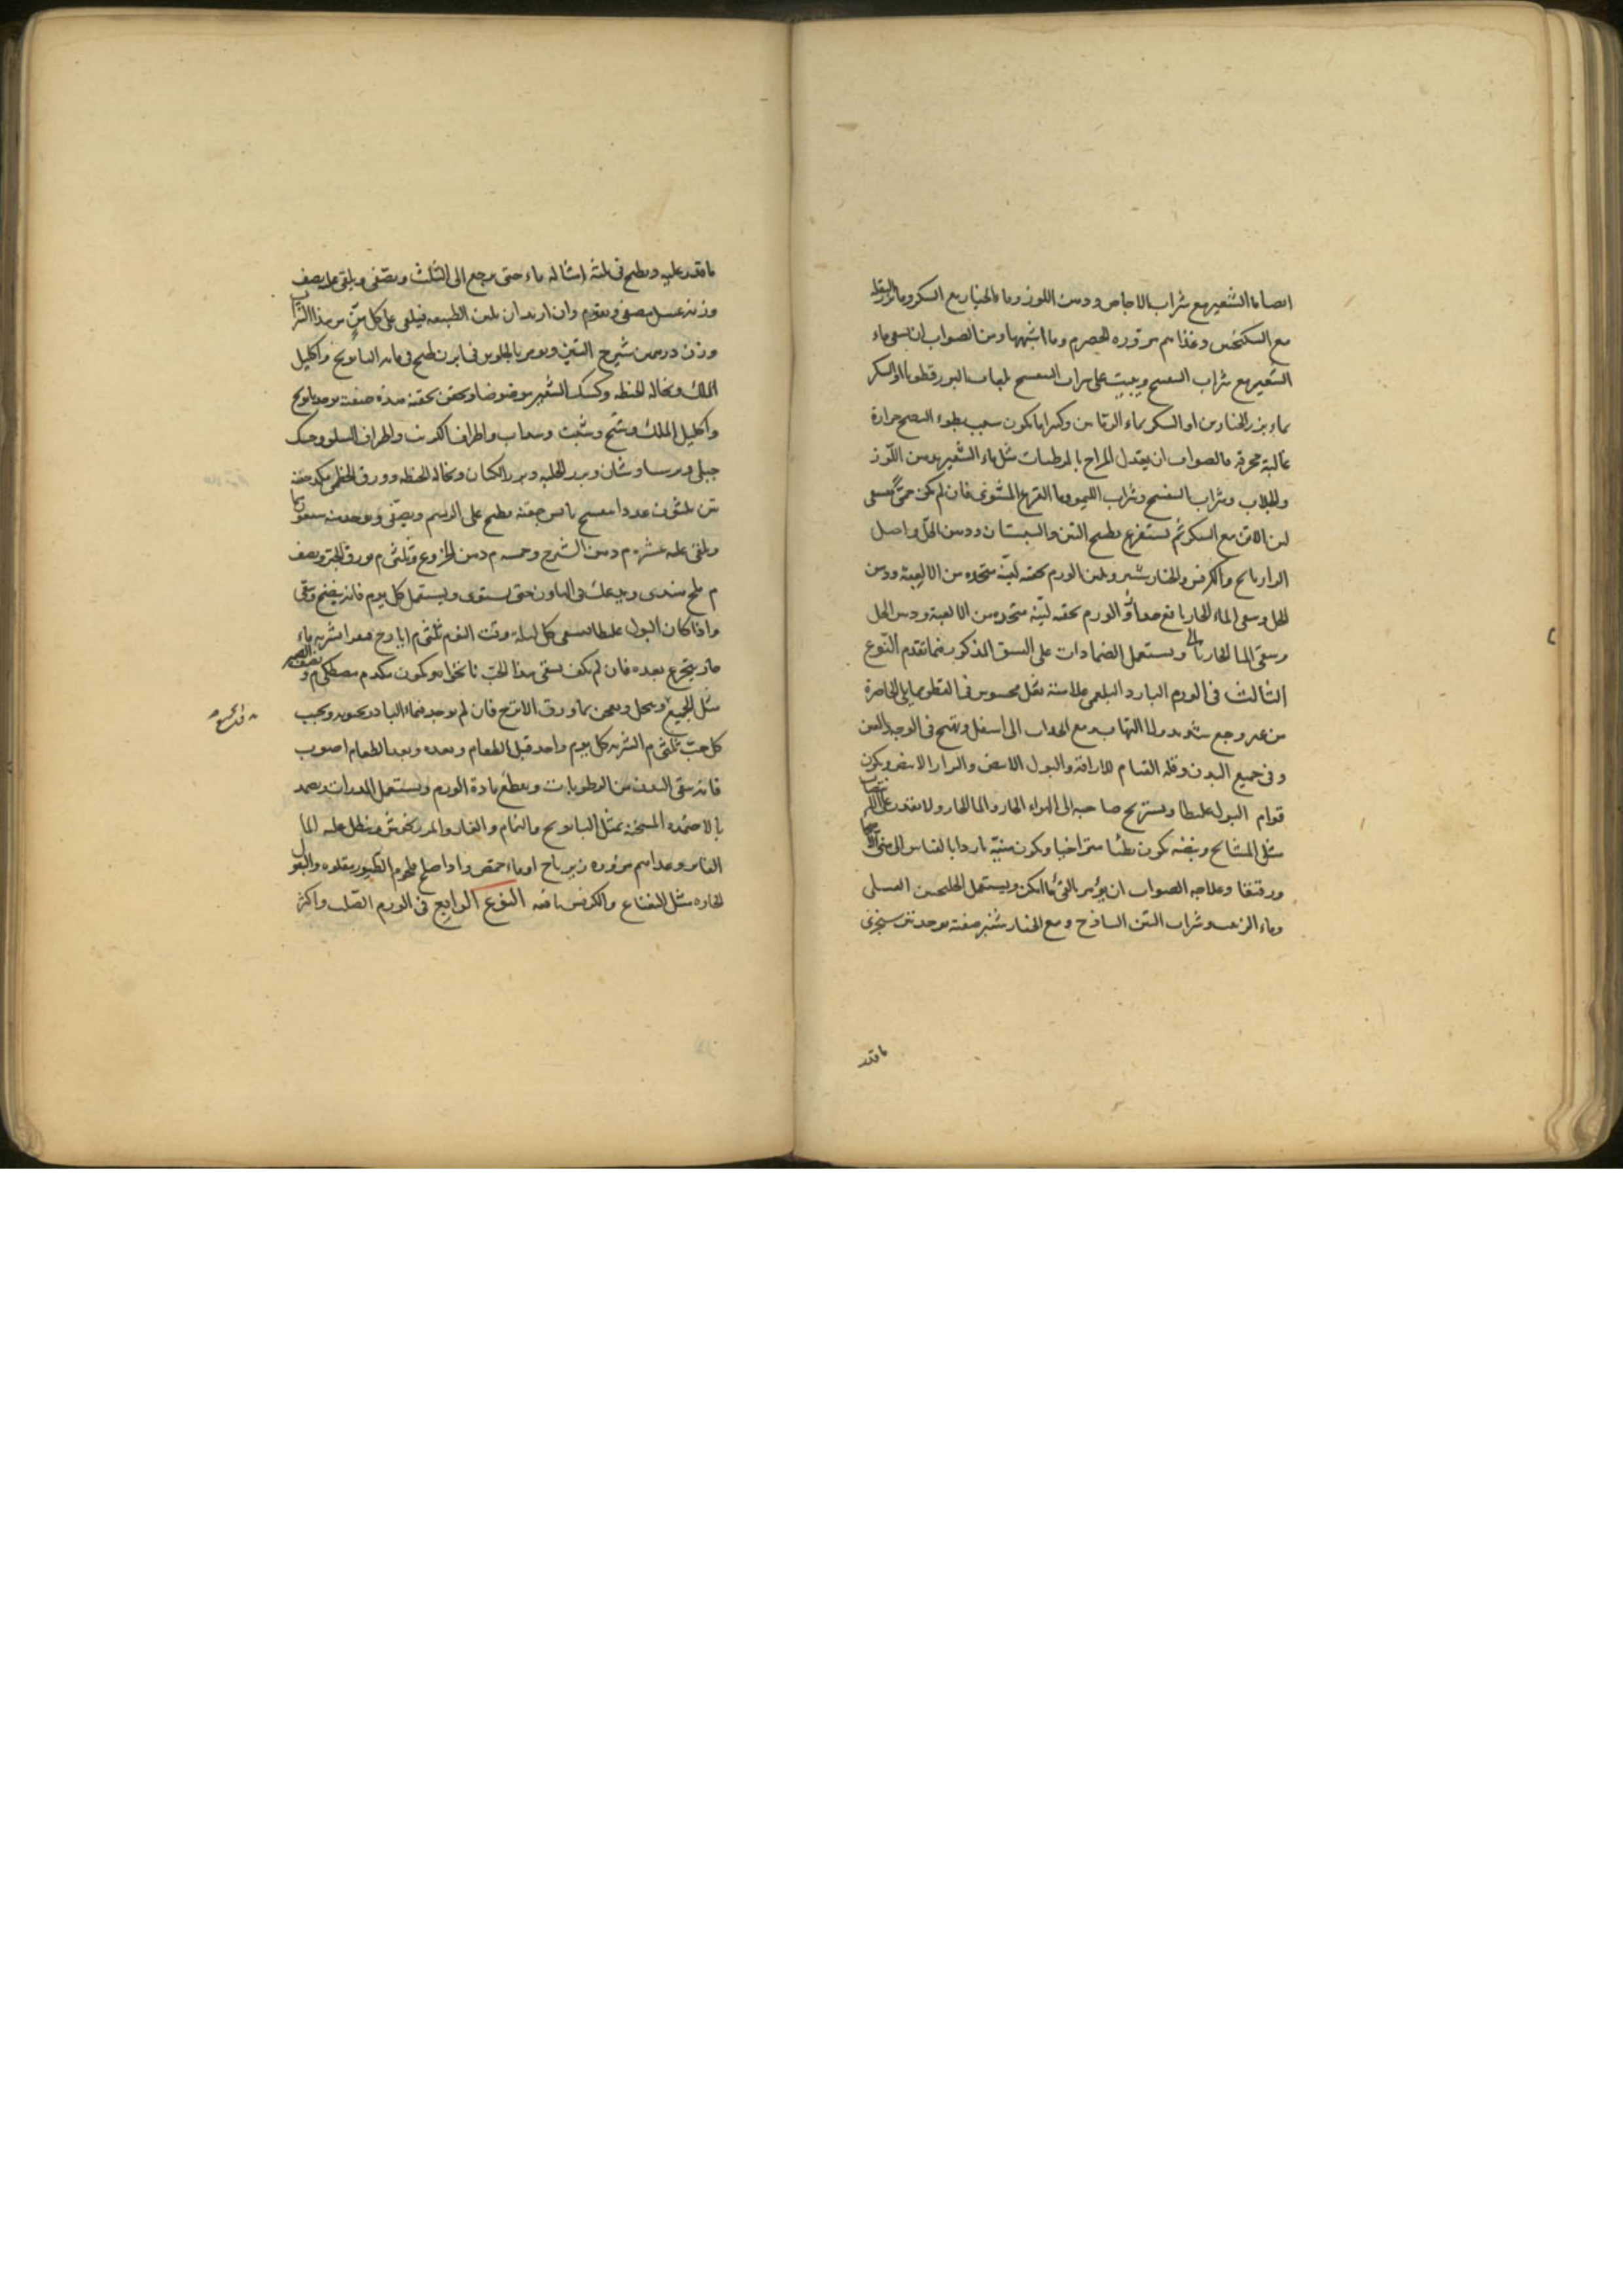 ايضا ماء الشعير مع شراب الاجاص ودهن اللوز وماء الخيار مع السكر وماء البقلة
مع السكنجبين وغذاهم مزورة الحصرم وما اشبهها ومن الصواب ان يسقى ماء
الشعير مع شراب البنفسج ويبيت على شراب البنفسج بلعاب البزرقطونا او السكر
بماء بزر الخيارين او السكر بماء الرمانين وكثيرا ما يكون سبب بطوء النضج حرارة
غالبة محرقة فالصواب ان يعدل المزاج بالمرطبات مثل ماء الشعير بدهن اللوز
والجلاب وشراب البنفسج وشراب الليمو وماء القرع المشوى فان لم يكن حمى فيسقى
لبن الاتن مع السكر ثم يستفرغ بطبيخ التين والسبستان ودهن الخل واصل
الرازيانج والكرفس والخيارشنبر ويلين الورم بحقنة لينة متخذة من الالعبة ودهن
الخل ويسقى الماء الحار الورم بحقنة لينة متخذة من الالعبة ودهن الخل
ويسقى الماء الحار ويستعمل الضمادات على النسق المذكور فيما تقدم النوع
الثالث فى الورم البارد البلغمى علامته ثقل محسوس فى القطن مما يلى الخاصرة
من غير وجع شديد ولا التهاب مع انجذاب الى اسفل وتهيج فى الوجه والعين
وفى جميع البدن وقلة القيام للاراقة والبول الابيض والبراز الابيض ويكون
قوام البول غليظا ويستريح صاحبه الى الهواء الحار والماء الحار ولا يقدر على
مثل المشايخ ونبضه يكون بطيئا متراخيا ويكون منيه باردا بالقياس الى منى
ورقيقا وعلاجه الصواب ان يؤمر بالقئ ما امكن ويستعمل الخلنجبين العسلى
وماء الزبيب وشراب التين الساذج ومع الخيارشنبر صفته يوخذ تين سنجرى
ما قدر
ما قدر عليه ويطبخ فى ثلثة امثاله ماء حتى يرجع الى الثلث ويصفى ويلقى عليه نصف
وزنه عسل مصفى ويقوم وان اريد ان يلين الطبيعة فيلقى على كل من من هذا الشراب
وزن درهمين شيرج التين ويومر بالجلوس فى ابزن طبخ فى مائه البابونج واكليل
الملك ونخالة الحنطة وكشك الشعير مرضوضا ويحقن بحقنة هذه صفته يوخذ بابونج
واكليل الملك وشيح وشبث واطراف الكرنب واطراف السلق وحسك
جبلى وبرساوشان وبزر الحلبة وبزر الكتان ونخالة الحنطة وورق الخطمى مكد حفنة
تين ثلثون عددا بنفسج يابس حفنة يطبخ على الرسم ويصفى ويوخذ منه
ويلقى عليه عشرة م دهن الشيرج وخمسة م دهن الخروع وثلثى م بورق الخبز ونصف
م ملح هندى ويدعك فى الهاون حتى يستوى ويستعمل كل يوم فانه ينضج وينقى
واذا كان البول غليظا فيسقى كل ليلة وقت النوم ثلثى م ايارج فيقرا بشربة ماء
حار يتجرع بعده فان لم يكف يسقى هذا الحب نانخواه وكمون مكد م مصطكى م ونصف الصبر
مثل الجميع وينخل ويعجن بماء ورق الاترج فان لم يوجد فماء البادرنجبويه ويحبب
كل حب ثلثى م الشربة كل يوم واحد قبل الطعام وبعده وبعد الطعام اصوب
فانه ينقى البدن من الرطوبات ويقطع مادة الورم ويستعمل المدرات ويضمد
بالاضمدة المسخنة بمثل البابونج والنمام والغار والمرزنجوش وينطل عليه الماء
الفاتر وغذاهم مزورة زيرباج او ماء حمص واذا صلح فلحوم الطيور مقلوة والبقول
الحارة مثل النعناع والكرفس نافعة النوع الرابع فى الورم الصلب واكثر